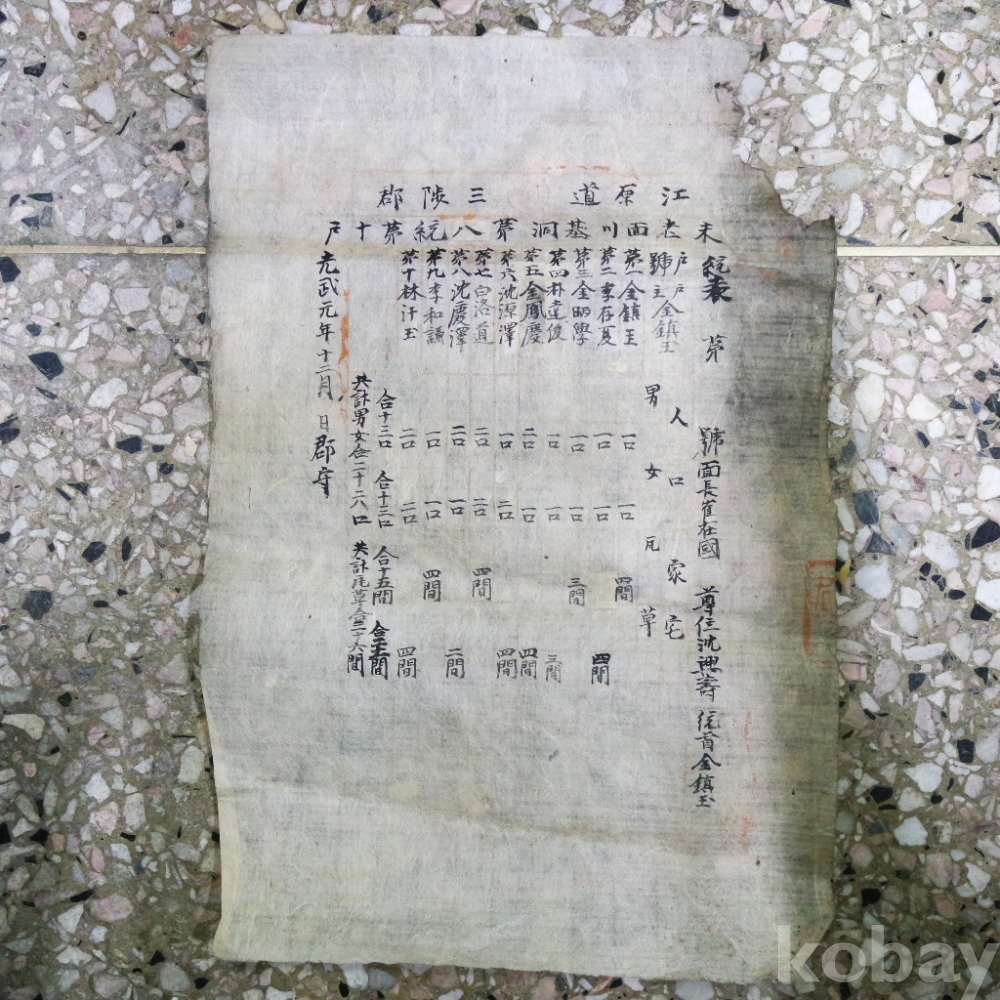 江原道三陟郡
未老面川基洞第八統第十戶
統表 第 號 面長崔在國 尊位沈興壽 統首金鎮玉
人口 家宅
戶號 戶主 金鎮玉 男 女 瓦 草
第一金鎮玉 一口 一口 四間
第二李存夏 一口 一口 四間
第三金昞學 一口 一口 三間
第四朴達俊 一口 一口 三間
第五金鳳慶 二口 一口 四間
第六沈源澤 一口 二口 四間
第七白洛道 二口 二口 四間
第八沈慶澤 二口 一口 二間
第九李和謙 一口 一口 四間
第十林汁玉 二口 二口 四間
合十三口 合十三口 合十五間 合二十一間
共計男女合二十六口 共計瓦草合三十六間
光武元年十二月 日 郡守
kobay